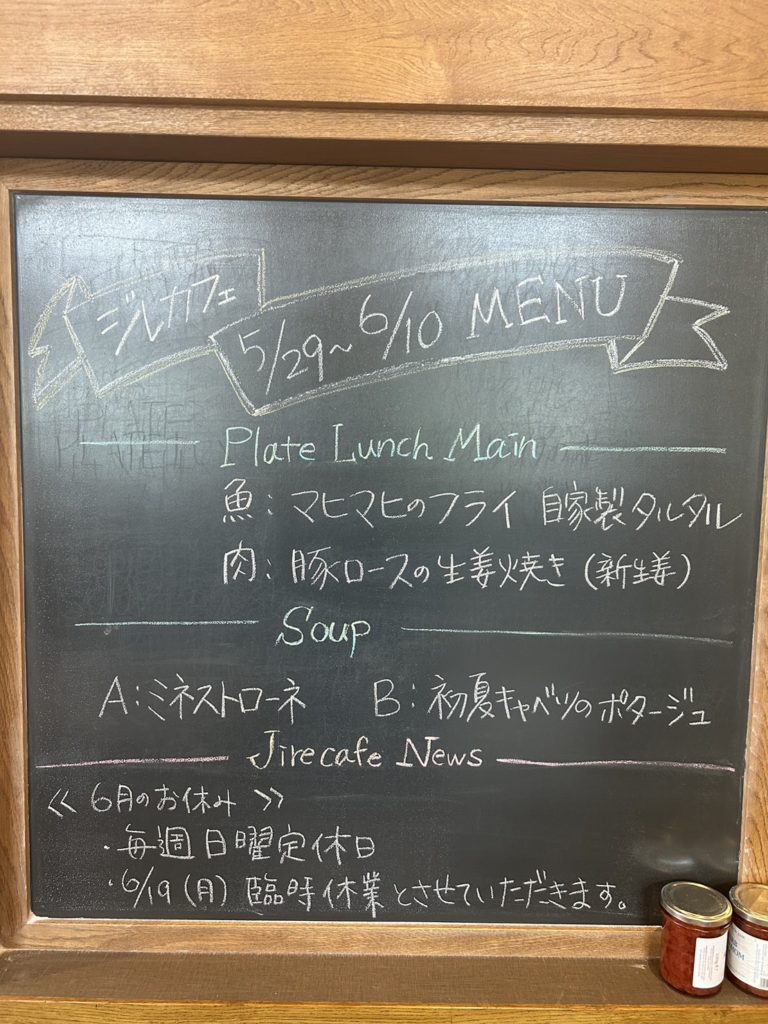 ジルカフェ
5/29~6/10 MENU
Plate Lunch Main
魚:マヒマヒのフライ 自家製タルタル
肉:豚ロースの生姜焼き(新生姜)
Soup
A:ミネストローネ B:初夏キャベツのポタージュ
Jirecafe News
≪6月のお休み≫
・毎週日曜定休日
・6/19(月)臨時休業とさせていただきます。